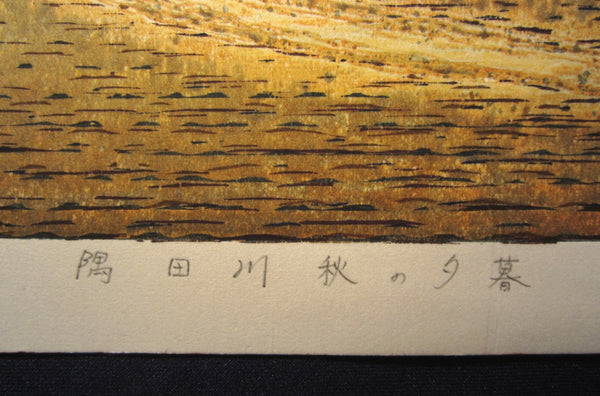 隅田川秋の夕暮